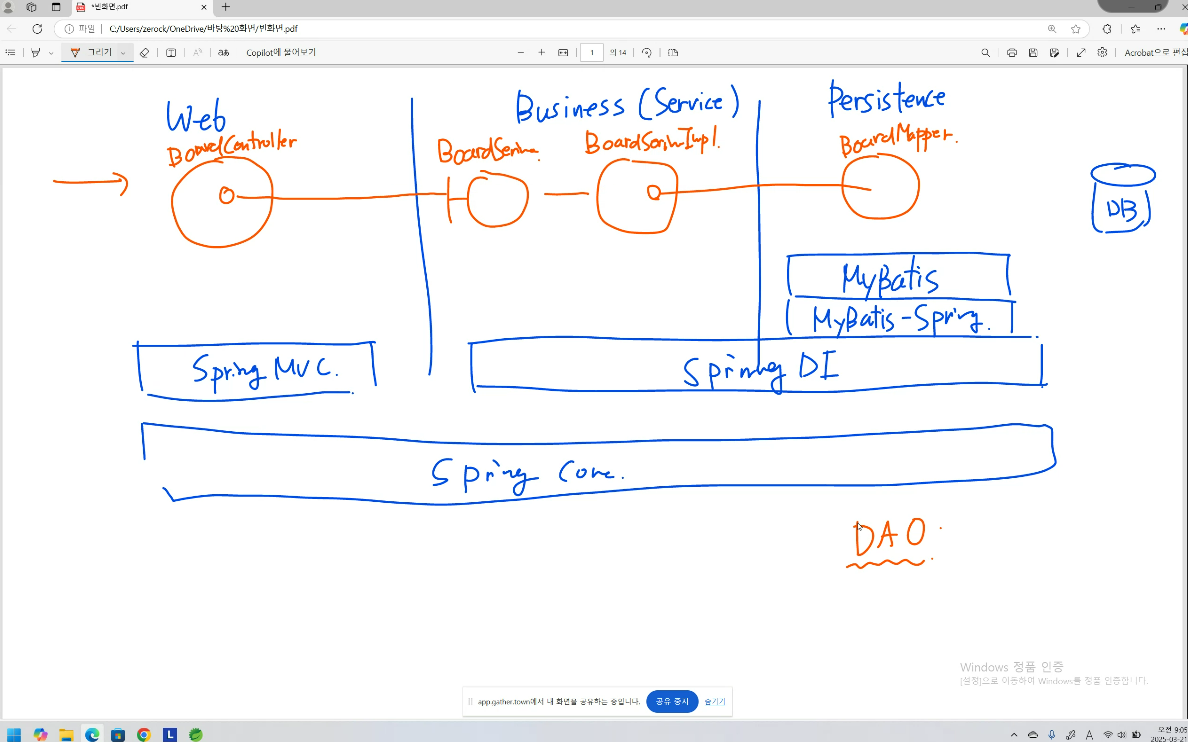 *빈화면.pdf
파일 C:/Users/zerock/OneDrive/바탕%20화면/빈화면.pdf
그리기 aあ Copilot에 물어보기 1 의 14 Acrobat으로 편집
Web Business (Service) Persistence
BoardController BoardService BoardServiceImpl. BoardMapper.
DB
MyBatis
MyBatis-Spring.
Spring MVC. Spring DI
Spring Core.
DAO
Windows 정품 인증
[설정]으로 이동하여 Windows를 정품 인증합니다.
app.gather.town에서 내 화면을 공유하는 중입니다. 공유 중지 숨기기
L A 오전 9:05
2025-03-21